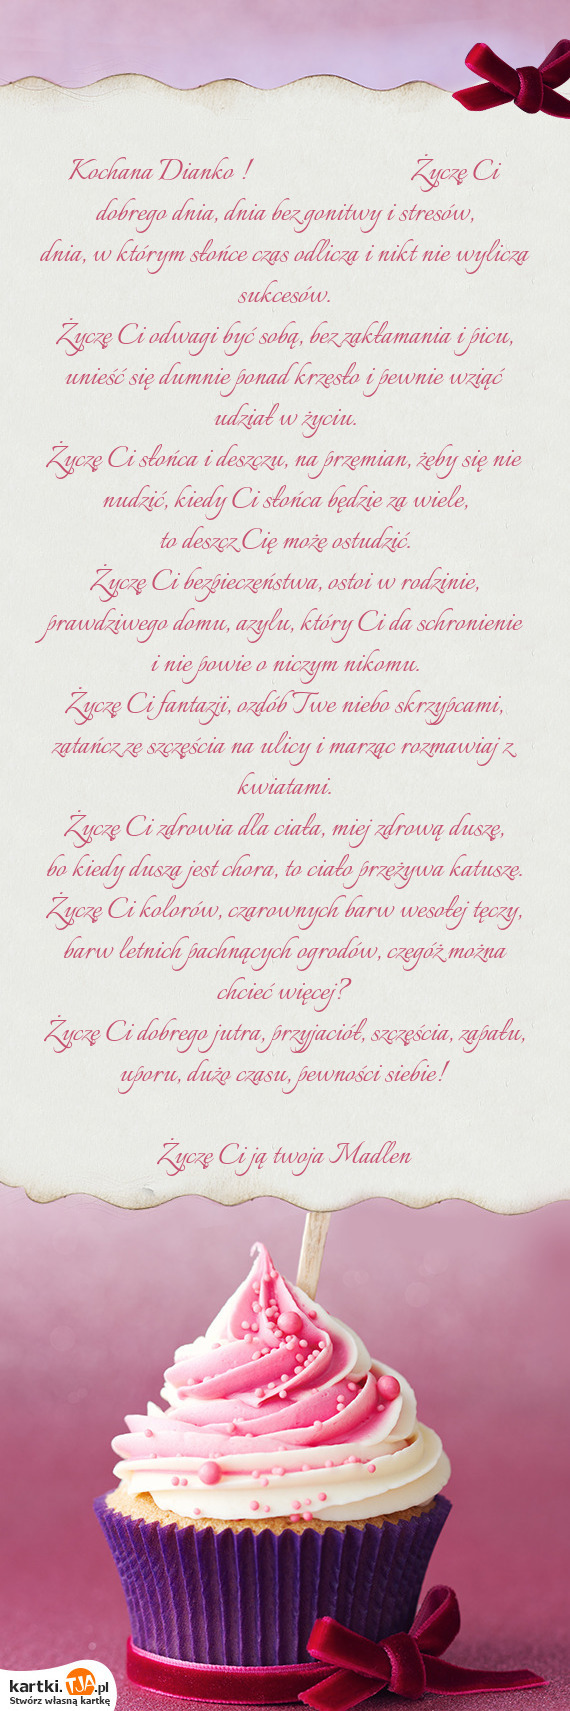 Kochana Dianko ! Życzę Ci
dobrego dnia, dnia bez gonitwy i stresów,
dnia, w którym słońce czas odlicza i nikt nie wylicza
sukcesów.
Życzę Ci odwagi być sobą, bez zakłamania i picu,
unieść się dumnie ponad krzesło i pewnie wziąć
udział w życiu.
Życzę Ci słońca i deszczu, na przemian, żeby się nie
nudzić, kiedy Ci słońca będzie za wiele,
to deszcz Cię może ostudzić.
Życzę Ci bezpieczeństwa, ostoi w rodzinie,
prawdziwego domu, azylu, który Ci da schronienie
i nie powie o niczym nikomu.
Życzę Ci fantazji, ozdób Twe niebo skrzypcami,
zatańcz ze szczęścia na ulicy i marząc rozmawiaj z
kwiatami.
Życzę Ci zdrowia dla ciała, miej zdrową duszę,
bo kiedy dusza jest chora, to ciało przeżywa katusze.
Życzę Ci kolorów, czarownych barw wesołej tęczy,
barw letnich pachnących ogrodów, czegóż można
chcieć więcej?
Życzę Ci dobrego jutra, przyjaciół, szczęścia, zapału,
uporu, dużo czasu, pewności siebie!
Życzę Ci ją twoja Madlen
kartki.TJA.pl
Stwórz własną kartkę